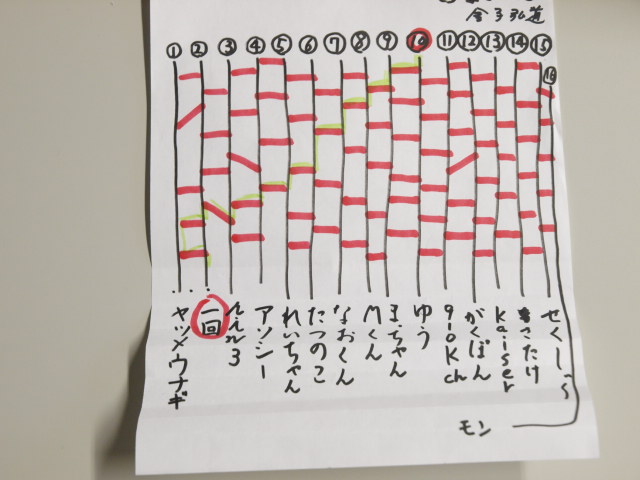 金子弘道
① ② ③ ④ ⑤ ⑥ ⑦ ⑧ ⑨ ⑩ ⑪ ⑫ ⑬ ⑭ ⑮
⑯
ヤツメウナギ
一回
ルルル3
アソシー
れいちゃん
たつのこ
なおくん
Mくん
まーちゃん
ゆう
910Kch
がくぽん
Kaiser
きこたけ
せくしー
モン